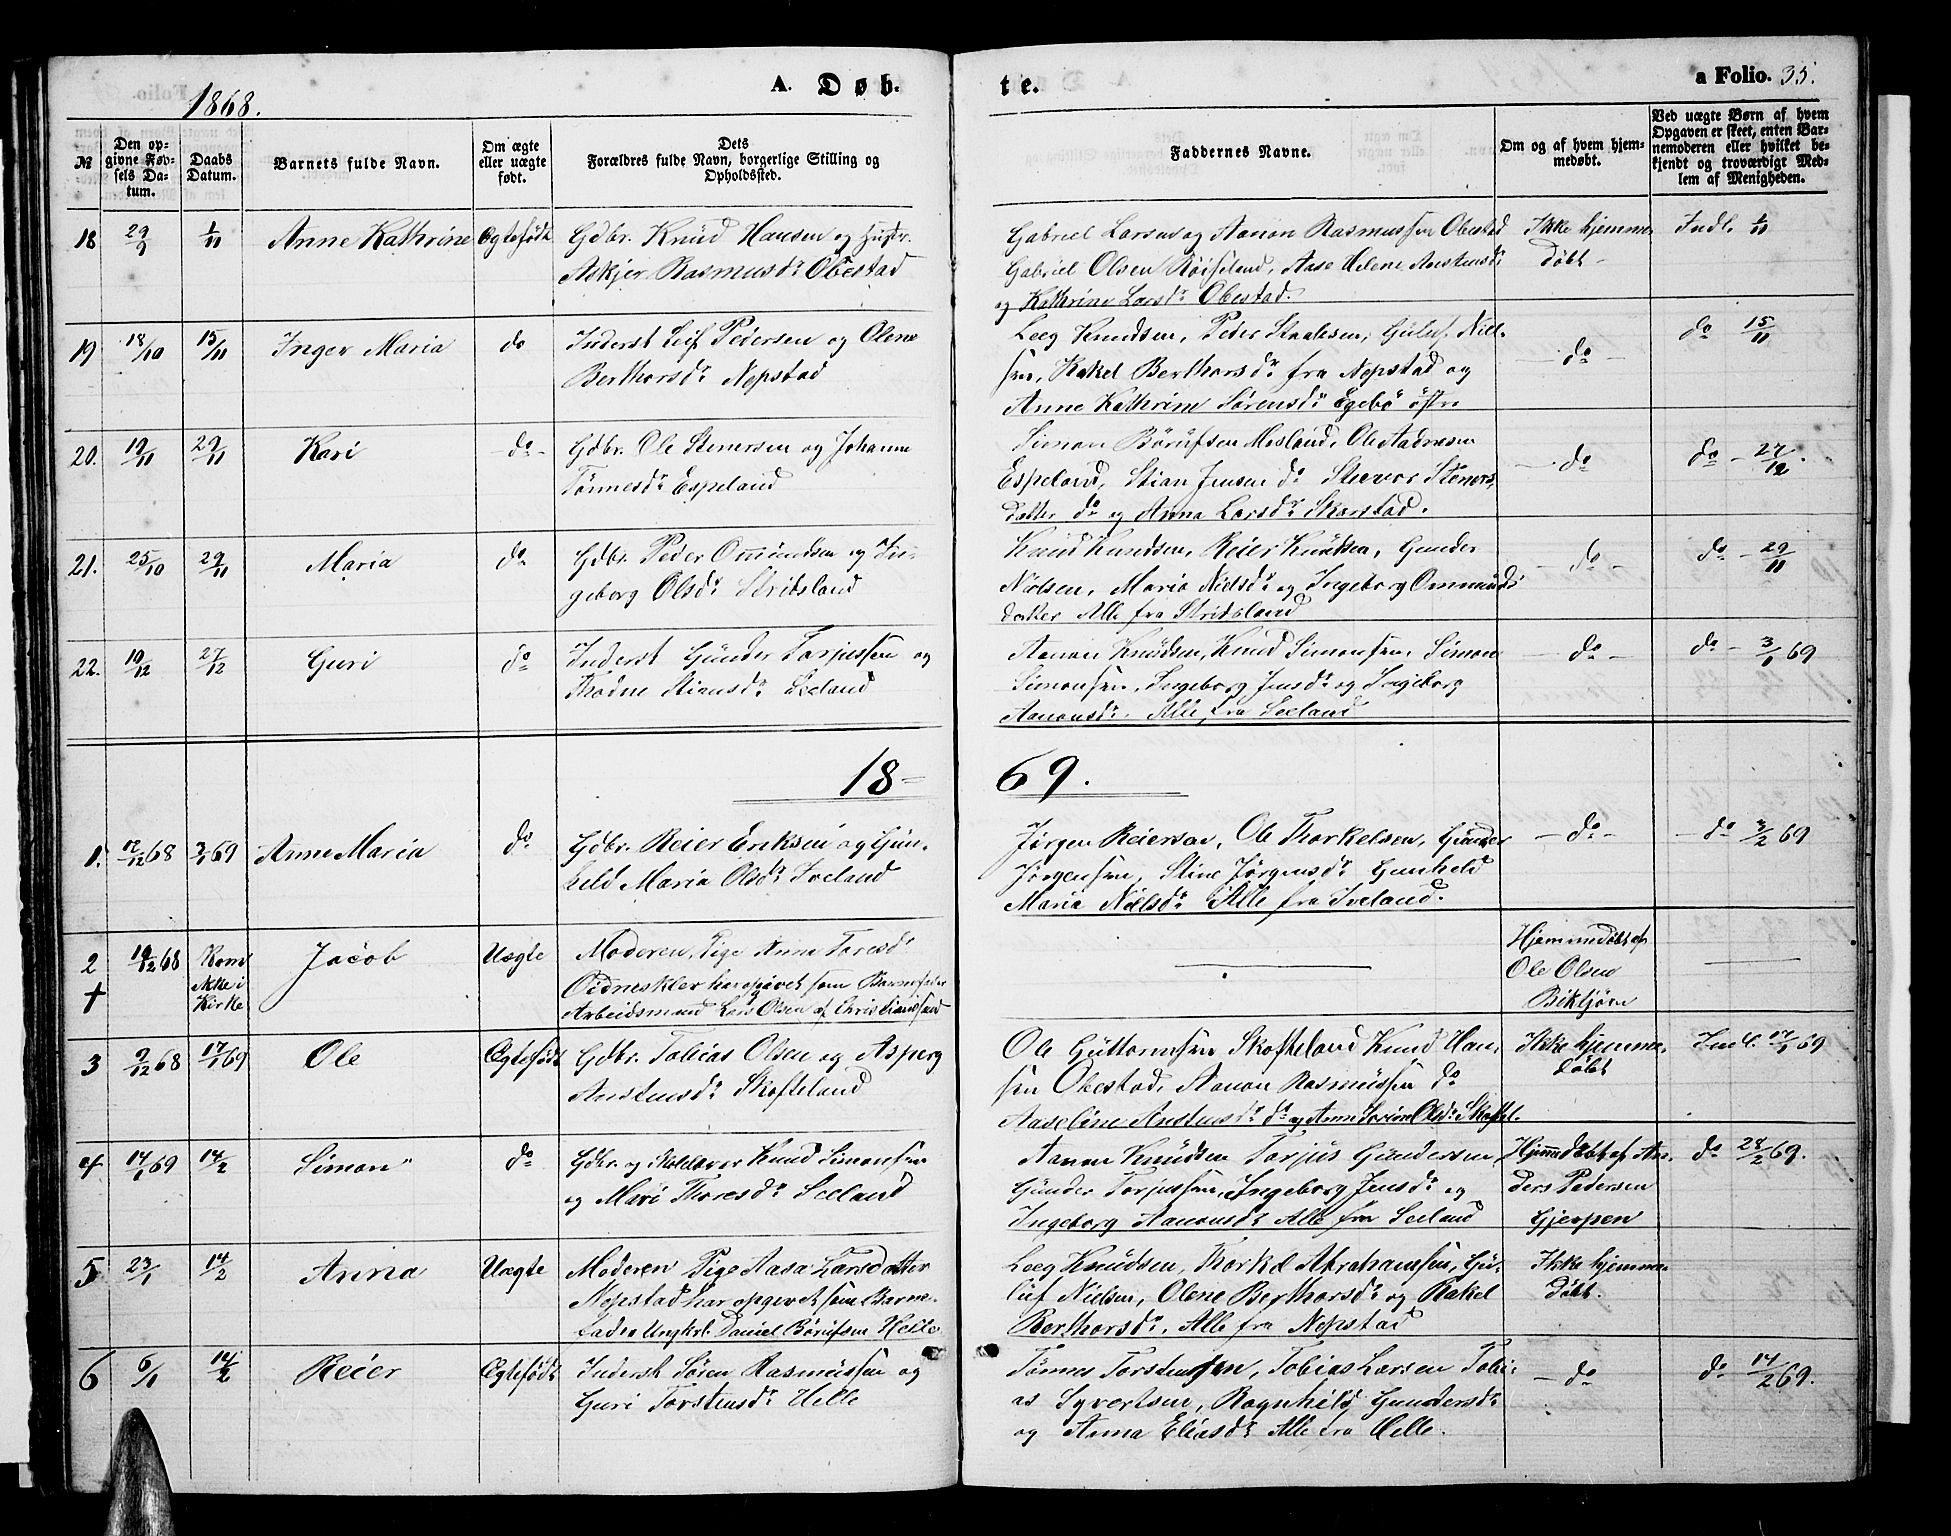 1868.
A. Døb.
te.
a Folio. 35.
№
Den opgivne Fødsels Datum.
Daabs Datum.
Barnets fulde Navn.
Om ægte eller uægte født.
Dets Forældres fulde Navn, borgerlige Stilling og Opholdssted.
Faddernes Navne.
Om og af hvem hjemmedøbt.
Ved uægte Børn af hvem Opgaven er skeet, enten Barnemoderen eller hvilket bekjendt og troværdigt Medlem af Menigheden.
18 29/9 1/11 Anne Kathrine Ægtefødt
Gdbr. Knud Hansen og Hustr.
Askjer Rasmusdr Obestad
Gabriel Larsen og Aanon Rasmussen Obestad
Gabriel Olsen Røiseland, Aase Helene Anstensdr
og Kathrine Larsdr Obestad.
Ikke hjemme
døbt
Indl. 1/11
19 18/10 15/11 Inger Maria do
Inderst Leif Pedersen og Olene
Berthorsdr Nepstad
Leeg Knudsen, Peder Staalesen, Guluf Niel-
sen, Rakel Berthorsdr fra Nepstad og
Anne Kathrine Sørensdr Egebø østre
do
do 15/11
20. 19/11 29/11 Kari do
Gdbr. Ole Stenersen og Johanne
Tønnesdr Espeland
Simon Børufsen Mesland, Ole Aadnesen
Espeland, Stian Jensen do Steenor Steners
datter do og Anna Larsdr Skarstad.
do
do 27/12.
21. 25/10 29/11 Maria do
Gdbr. Peder Omundsen og In-
geborg Olsdr Stridsland
Knud Knudsen, Reier Knudsen, Gunder
Nielsen, Maria Nielsdr og Ingeborg Ommunds
datter Alle fra Stridsland
do
do 29/11
22. 10/12 27/12 Guri do
Inderst Gunder Torjussen og
Thodne Stiansdr Seeland
Aanon Knudsen, Knud Simonsen, Simon
Simonsen, Ingeborg Jensdr og Ingeborg
Aanonsdr. Alle fra Seeland
do
do 3/1 69
18- 69.
1. 12/12 68 3/1 69 Anne Maria do
Gdbr. Reier Eriksen og Gun-
hild Maria Olsdr Iveland
Jørgen Reiersen, Ole Thorkelsen, Gunder
Jørgensen, Stine Jørgensdr Gunhild
Maria Nielsdr Alle fra Iveland.
do
do 3/2 69
2 † 19/12 68 Kom ikke i Kirke Jacob Uægte
Moderen, Pige Anne Toresdr
Oidneskler har opgivet som Barnefader
Arbeidsmand Lars Olsen af Christiansand
Hjemmedøbt af
Ole Olsen
Birktjørn
3 9/12 68 17/1 69 Ole Ægtefødt
Gdbr. Tobias Olsen og Asperg
Anstensdr Skofteland
Ole Guttormsen Skofteland Knud Han-
sen Obestad, Aanon Rasmussen do
Aaseline Anstensdr do og Anne Torine Olsdr Skoftel.
Ikke hjemme-
døbt
Indl. 17/1 69
4 14/1 69 14/2 Simon do
Gdbr. og Skolelærer Knud Simonsen
og Mari Thoresdr Seeland
Aanon Knudsen Torjus Gundersen
Gunder Torjussen, Ingeborg Jensdr og
Ingeborg Aanonsdr Alle fra Seeland
Hjemmedøbt af An-
ders Pedersen
Gjerpen
do 28/2 69.
5 23/1 14/2 Anna Uægte
Moderen Pige Aasa Larsdatter
Nepstad har opgivet som Barne-
fader Ungkrl. Daniel Børufsen Helle
Leeg Knudsen, Thorkel Abrahamsen, Gu-
luf Nielsen, Olene Berthorsdr og Rakel
Berthorsdr. Alle fra Nepstad
Ikke hjemme
døbt.
6 6/1 14/2 Reier Ægtefødt
Inderst Søren Rasmussen og
Guri Torstensdr Helle
Tønnes Torstensen, Tobias Larsen Tobi-
as Syvertsen, Ragnhild Gundersdr
og Anna Eliasdr Alle fra Helle.
do
do 14/2 69.